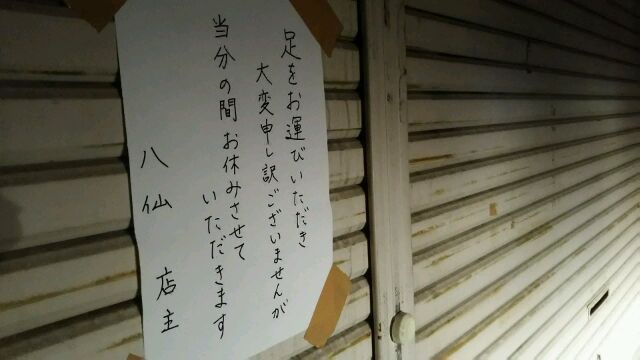 足をお運びいただき
大変申し訳ございませんが
当分の間お休みさせて
いただきます
八仙 店主